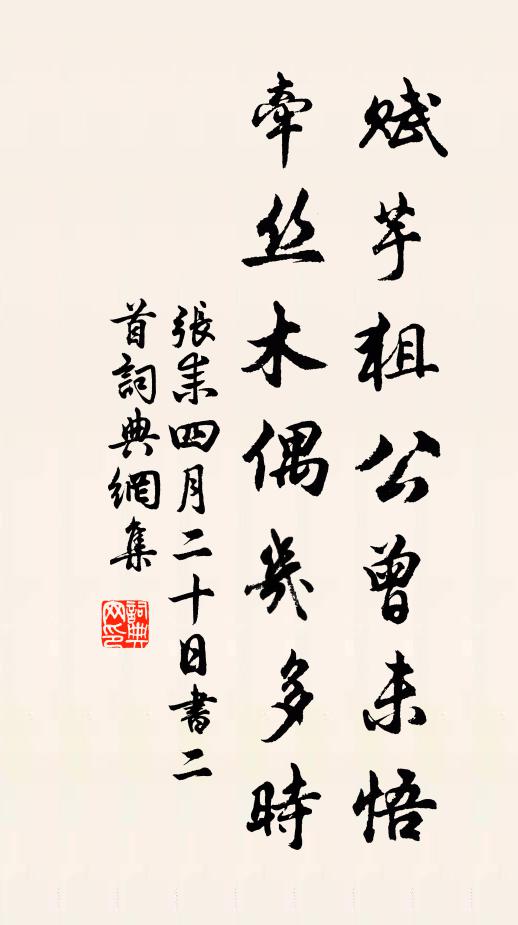 賦芋狙公曾未悟
牽丝木偶幾多時
張耒四月二十日書二
首詞典網集
詞典
网印